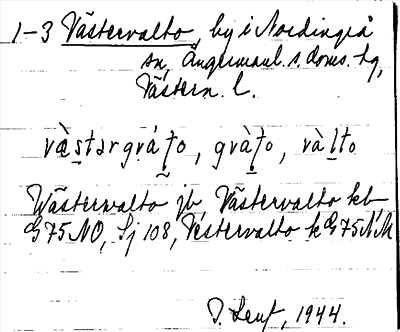 1-3 Västervalto, by i Nordingrå
sn, Ångermanl. s. doms. hg,
Västern. l.
væ̀stərgvát̯o, gvàt̯o, vàlto
Wästerwalto jb, Västervalto kb,
G75NO, Sj 108, Vestervalto k G75NM
1944.